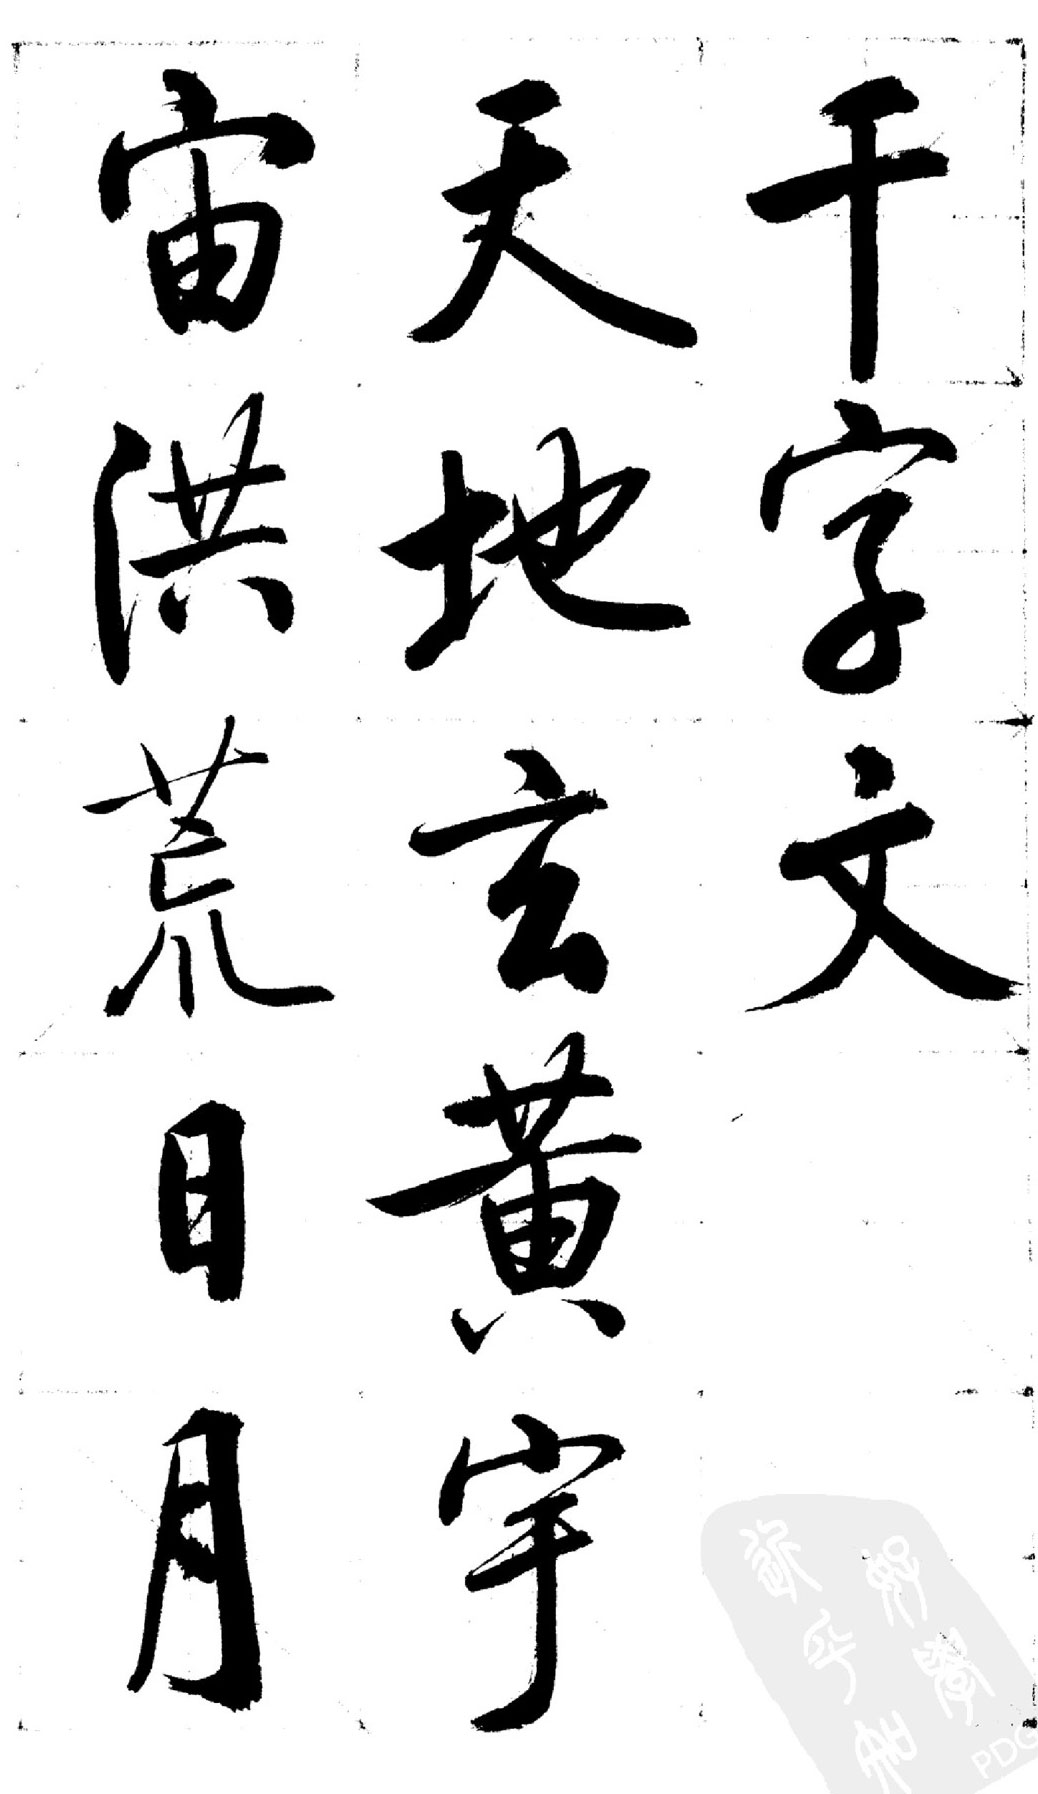 千字文
天地玄黄宇
宙洪荒日月
PDG